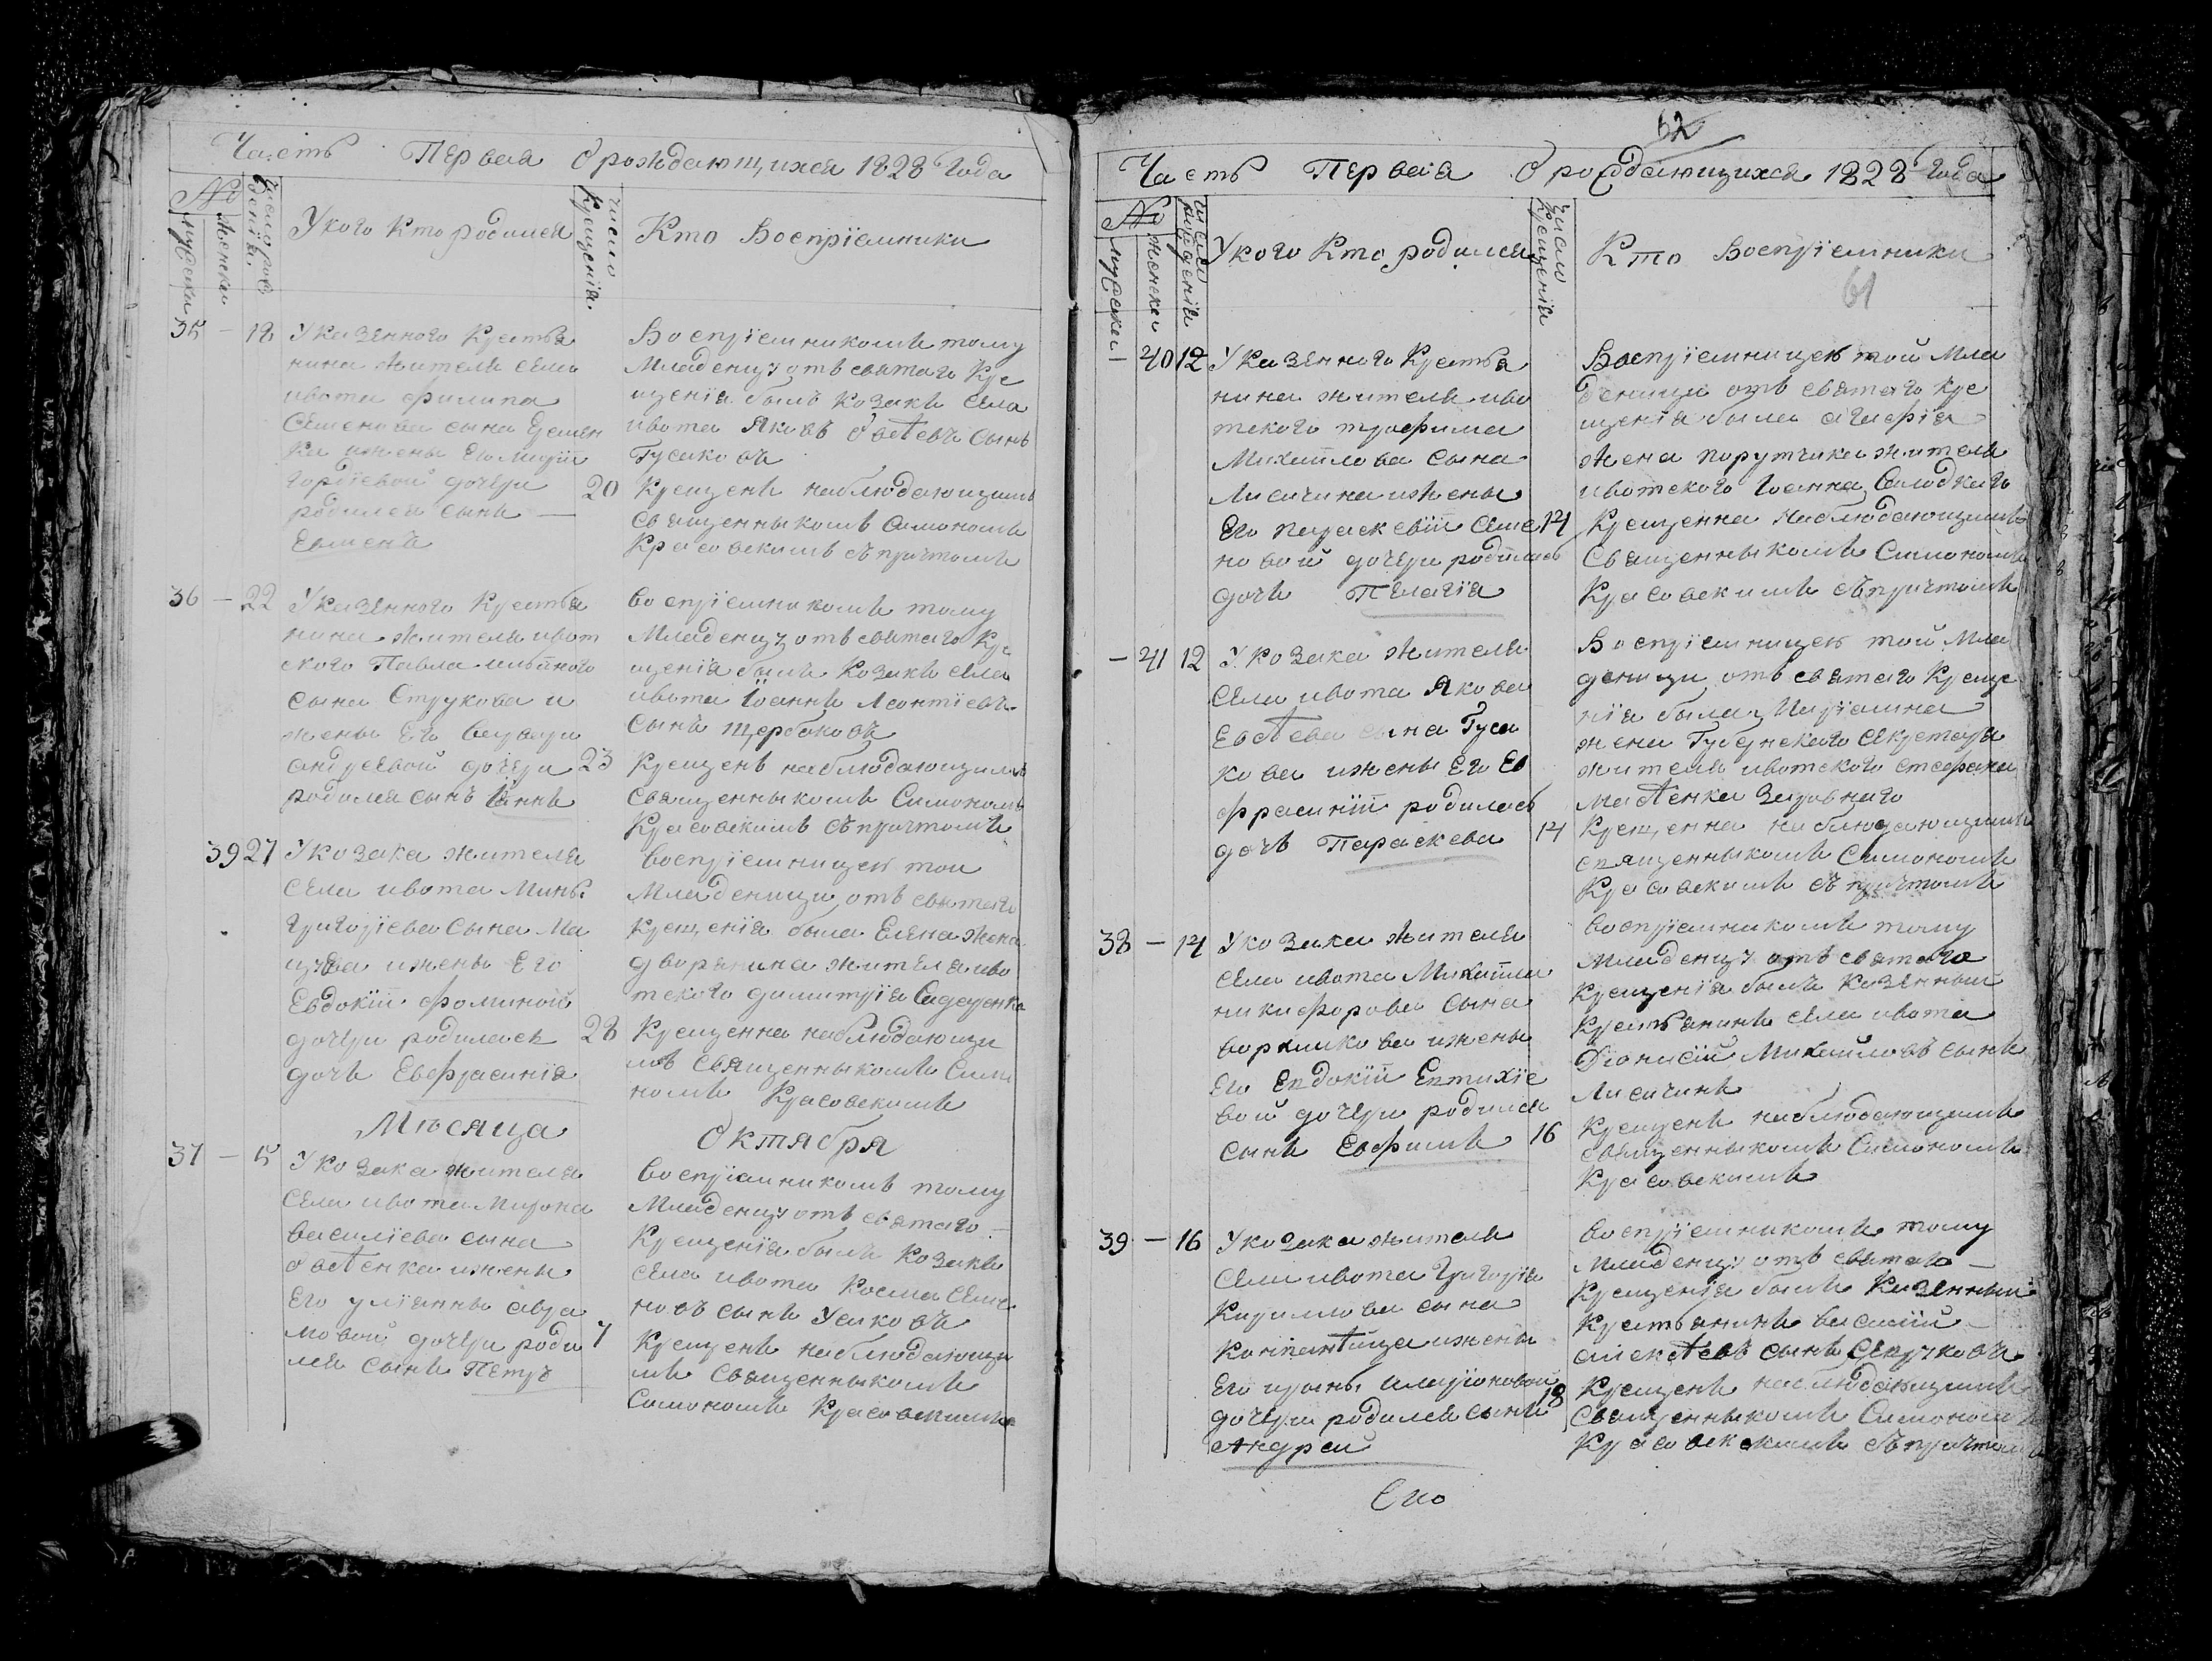 Часть Первая О рождающихся 1828 Года
№
мужеска
женска
число рожденія
У кого Кто родился
число Крещенія
Кто Воспріемники
35 – 18 У Казенного Крестья
нина жителя села
ивота филипа
Семенова сына Ереmен
ка ижены Его Маріи
Гордіевой дочери
родился сынъ —
Евменъ
Воспріемникомъ тому
Младенцу отъ святаго Кре
щенія былъ Козакъ села
ивота Яковъ Овсѣевъ Сынъ
Гусаковъ
20 Крещенъ наблюдающимъ
Священникомъ Симономъ
Красовскимъ съ причтомъ
36 – 22 У Казенного Крестья
нина жителя ивот
ского Павла
сына Струкова и
жены Его Варвари
андреевой дочери
родился сынъ Іоаннъ
воспріемникомъ тому
Младенцу отъ святаго Кре
щенія былъ Козакъ села
ивота Іоаннъ Леонтіевъ
сынъ Щербаковъ
23 Крещенъ наблюдающимъ
Священникомъ Симономъ
Красовскимъ съ причтомъ
39 27 У козака жителя
села ивота Мины
Григоріева Сына Ма
ижены Его
Евдокіи фоминой
дочери родилась
дочь Евфрасинія
воспріемницею той
Младеницы отъ святаго
Крещенія была Елена жена
дворянина жителя иво
тского димитрія
28 Крещенна наблюдающи
мъ Священникомъ Симо
номъ Красовскимъ
Мѣсяца Октября
37 – 5 У козака жителя
села ивота Мирона
василіева сына
овсѣенка ижены
Его уліянны авра
мовой дочери роди
лся сынъ Петръ
воспріемникомъ тому
Младенцу отъ святаго —
Крещенія былъ Козакъ
села ивота Косма Семе
новъ сынъ Усиковъ
7 Крещенъ наблюдающи
мъ Священникомъ
Симономъ Красовскимъ
62
Часть Первая О рождающихся 1828 Года
№
мужеска
женска
число рожденія
У кого Кто родился
число Крещенія
Кто Воспріемники
61
– 40 12 У Казенного Крестья
нина жителя иво
тского трофима
Михайлова Сына
Лисичина ижены
Его параскевіи Семе
новой дочери родилась
дочь Пелагія
Воспріемницею той Мла
деницы отъ святаго Кре
щенія была агафія
жена порутчика жителя
ивотского Іоанна
14 Крещенна Наблюдающимъ
Священникомъ Симономъ
Красовскимъ съ причтомъ
– 41 12 У Козака жителя
села ивота Якова
Евсѣева сына Гуса
кова ижены Его Ев
фрасиніи родилась
дочь Параскева
Воспріемницею той Мла
деницы отъ святаго Креще
нія была Маріамна
жена Губернского Секретаря
жителя ивотского стефана
14 Крещенна наблюдающимъ
священникомъ Симономъ
Красовскимъ съ причтомъ
38 – 14 У козака жителя
села ивота Михайла
никифорова сына
ижены
Его Евдокіи Евтихіе
вой дочери родился
сынъ Евфимъ
воспріемникомъ тому
младенцу отъ святаго
Крещенія былъ казенный
Крестьянинъ села ивота
Діонисій Михайловъ сынъ
Лисичинъ
16 Крещенъ наблюдающимъ
священникомъ Симономъ
Красовскимъ
39 – 16 У козака жителя
села ивота Григорія
Кирилова сына
ижены
Его ирины иларіоновой
дочери родился сынъ
Андрей
воспріемникомъ тому
младенцу отъ святаго —
Крещенія былъ Казенный
Крестьянинъ василій —
алексѣевъ сынъ Струковъ
18 Крещенъ наблюдающимъ
Священникомъ Симономъ
Красовскимъ съ причтомъ